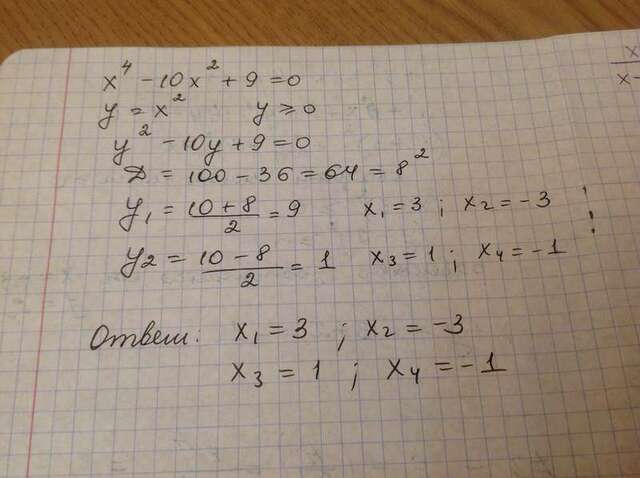 x⁴ - 10x² + 9 = 0
y = x² y ⩾ 0
y² - 10y + 9 = 0
D = 100 - 36 = 64 = 8²
y₁ = (10 + 8)/2 = 9 x₁ = 3 ; x₂ = -3
y₂ = (10 - 8)/2 = 1 x₃ = 1 ; x₄ = -1
Ответ: x₁ = 3 ; x₂ = -3
x₃ = 1 ; x₄ = -1